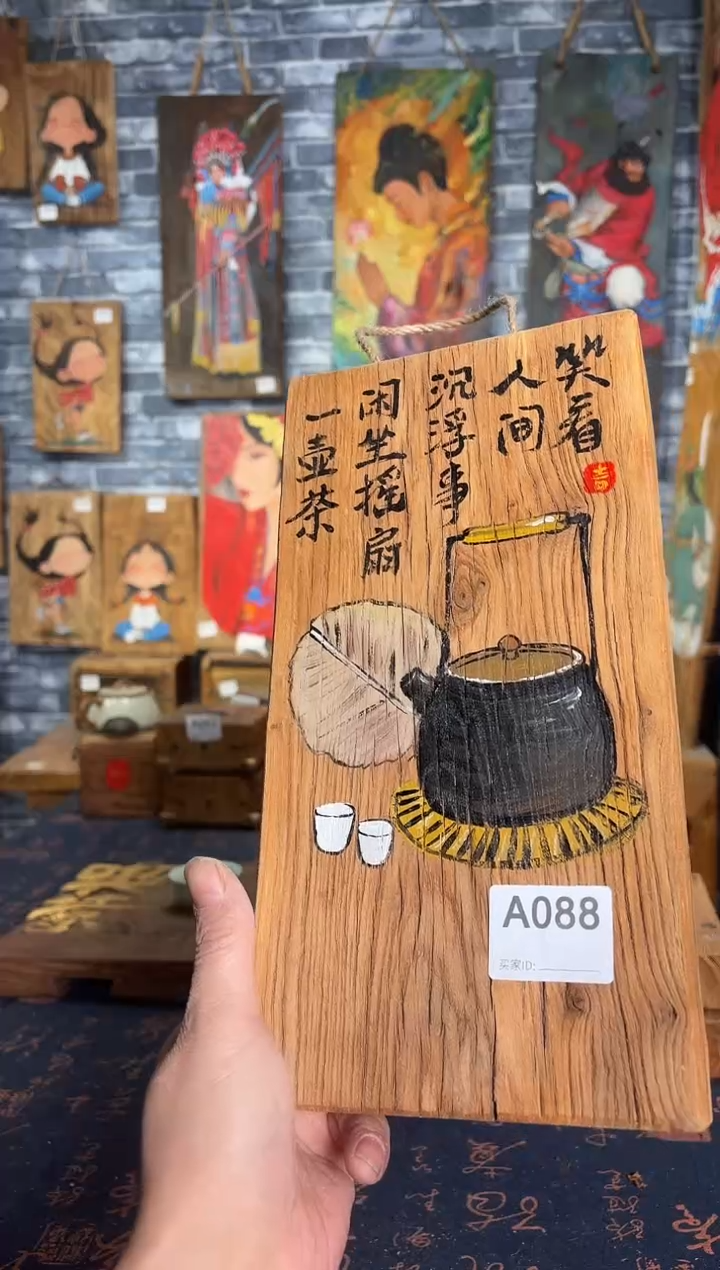 笑看
人间
沉浮事
闲坐摇扇
一壶茶
A088
买家ID: